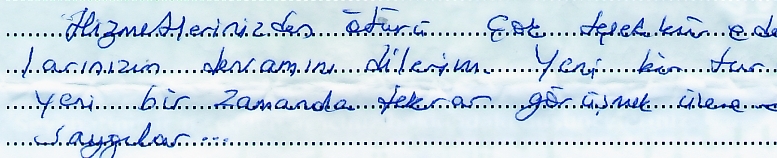 Hizmetlerinizden ötürü Çok teşekkür ede
larınızın devamını dilerim. Yeni bir tur
yeni bir zamanda tekrar görüşmek üzere
Saygılar...